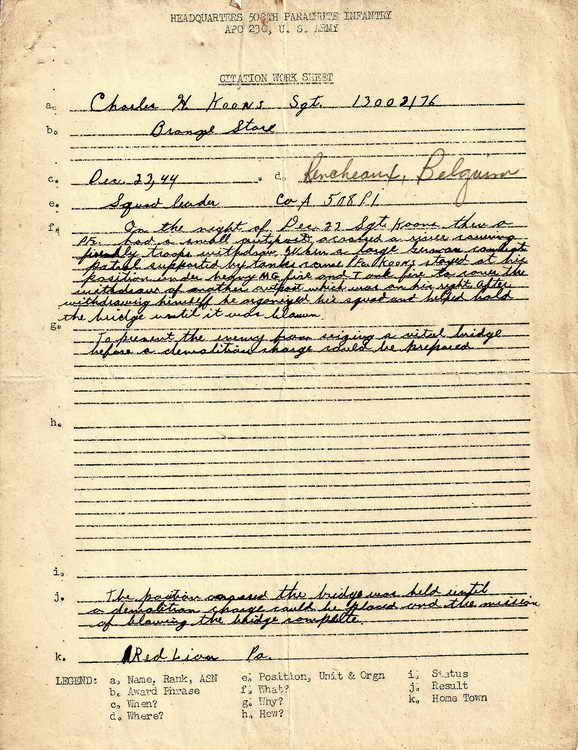 HEADQUARTERS 508TH PARACHUTE INFANTRY
APO 230, U. S. ARMY
CITATION WORK SHEET
a. Charles H Koons Sgt. 13002176
b. Bronze Star
c. Dec. 23,44 d. Rencheaux, Belgium
e. Squad leader Co A 508 PI
f. On the night of Dec 22 Sgt Koons then a
Pfc. had a small outpost across a river
friendly troops withdraw. When a large German combat
patrol supported by tanks came Pfc Koons stayed at his
position under heavy MG fire and Tank fire to cover the
withdraw of another outpost which was on his right. After
withdrawing himself he organized his squad and helped hold
the bridge until it was blown.
g. To prevent the enemy from seizing a vital bridge
before a demolition charge could be prepared
h.
i.
j. The position the bridge was held until
a demolition charge could be placed and the mission
of blowing the bridge complete.
k. Red Lion Pa.
LEGEND: a. Name, Rank, ASN e. Position, Unit & Orgn i. Status
b. Award Phrase f. What? j. Result
c. When? g. Why? k. Home Town
d. Where? h. How?